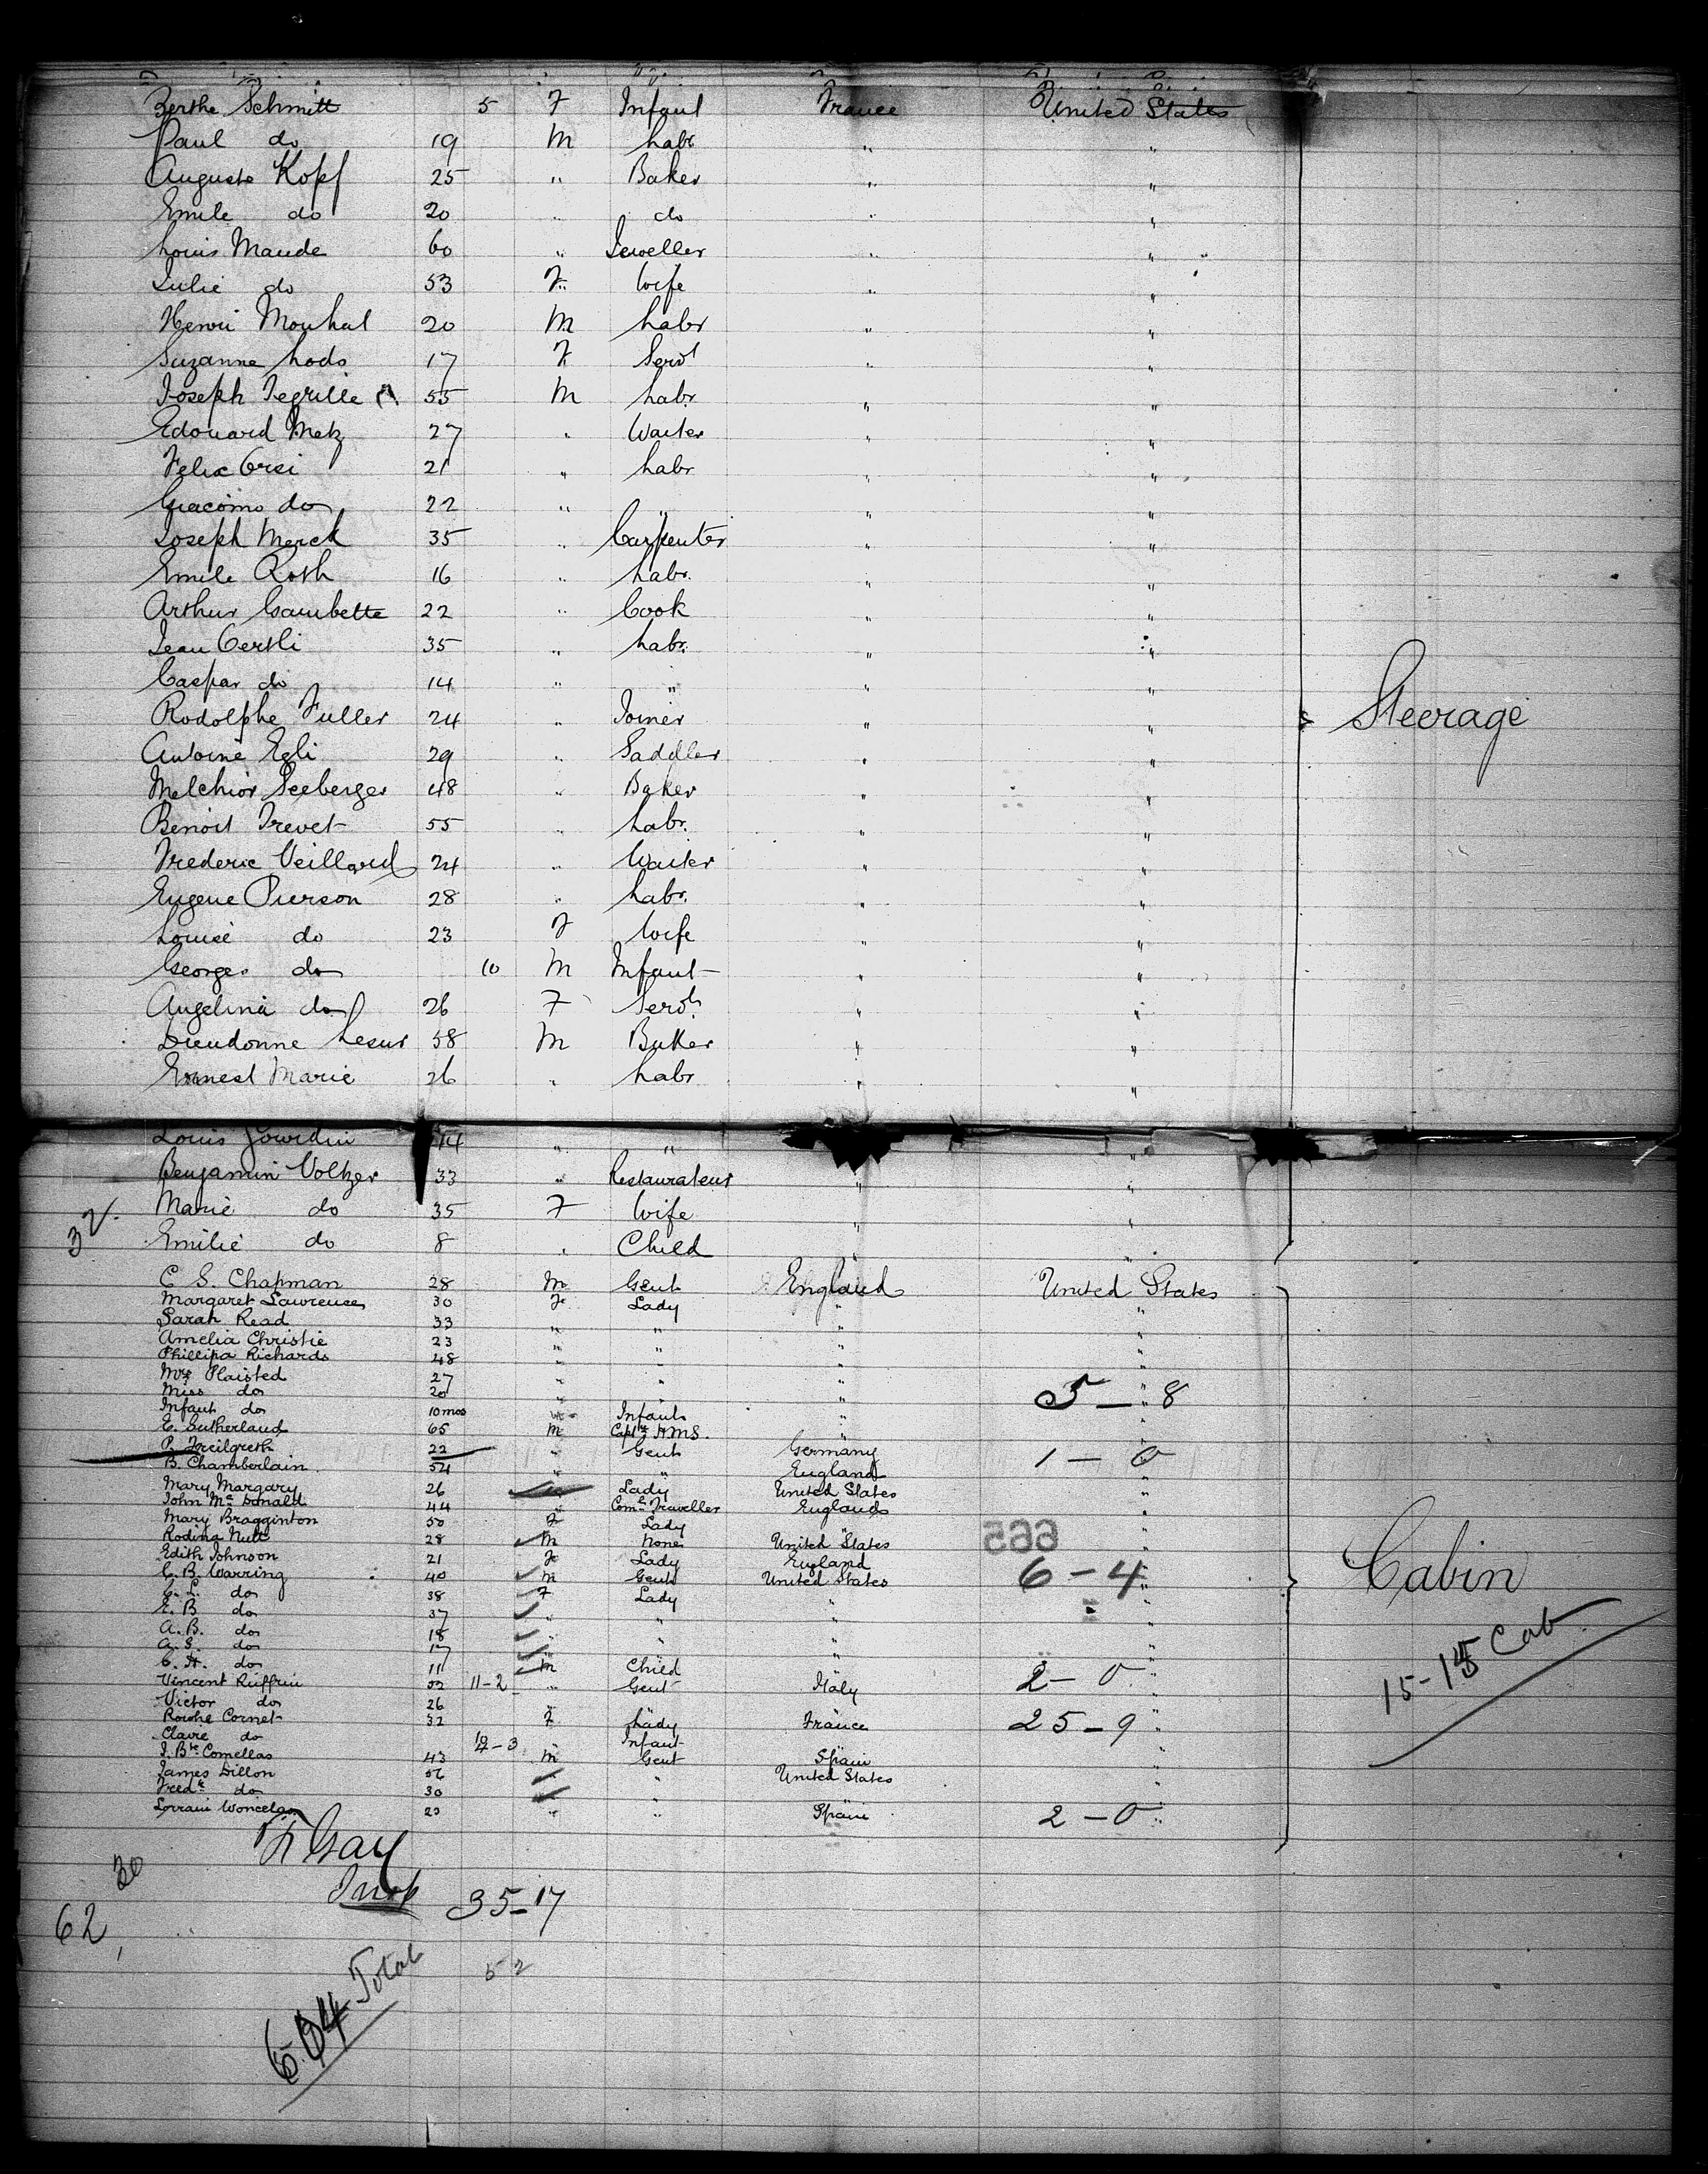 Berthe Schmitt 5 F Infant France United States
Paul do 19 M Labr " "
Auguste Kopf 25 " Baker " "
Emile do 20 " do " "
Louis Maude 60 " Jeweller " "
Julie do 53 F Wife " "
Henri Mouhat 20 M Labr " "
Suzanne Lods 17 F Servt " "
Joseph Tegrille 55 M Labr " "
Edouard Metz 27 " Waiter " "
Felix Orsi 21 " Labr " "
Giacomo do 22 " " " "
Joseph Merck 35 " Carpenter " "
Emile Roth 16 " Labr. " "
Arthur Gambette 22 " Cook " "
Jean Oertli 35 " Labr. " "
Caspar do 14 " " " "
Rodolphe Fuller 24 " Joiner " " Steerage
Antoine Egli 29 " Saddler " "
Melchior Seeberger 48 " Baker " "
Benoit Trevet 55 " Labr. " "
Frederic Veillard 24 " Waiter " "
Eugene Pierson 28 " Labr. " "
Louise do 23 F Wife " "
Georges do 10 M Infant " "
Angelina do 26 F Servt " "
Dieudonne Lesur 58 M Baker " "
Ernest Marie 26 " Labr " "
Louis Jourdin 44 " " "
Benjamin Voltzer 33 " Restaurateur " "
32. Marie do 35 F Wife " "
Emilie do 8 " Child " "
C S. Chapman 28 M Gent England United States
Margaret Lawrence 30 F Lady " "
Sarah Read 33 " " " "
Amelia Christie 23 " " " "
Phillipa Richards 48 " " " "
Mrs Plaisted 27 " " " "
Miss do 20 " " " 5 - 8
Infant do 10 mos " Infant "
E. Sutherland 65 M Captn HMS. "
P. Freilgrath 22 " Gent Germany 1 - 0
B. Chamberlain 54 " " England "
Mary Margary 26 " Lady United States "
John Mc Donald 44 " Coml Traveller England "
Mary Bragginton 50 F Lady " "
Rodina Nutt 28 M None United States "
Edith Johnson 21 F Lady England "
C. B. Warring 40 M Gent United States 6 - 4 Cabin
C. L. do 38 F Lady " "
E. B do 37 " " " "
A. B. do 18 " " " "
A. S. do 17 " " " "
C. H. do 11 M Child " "
Vincent Ruffini 52 11-2 " Gent Italy 2 - 0 15-15 Cab
Victor do 26 " " " "
Rosine Cornet 32 F Lady France 25 - 9
Claire do " Infant " "
J. Bte Comellas 43 M Gent Spain "
James Dillon 56 " " United States "
Fredk do 30 " " " "
Lorraine 23 " " Spain 2 - 0
Gay
30 Insp 35-17
62,
52
604 Total